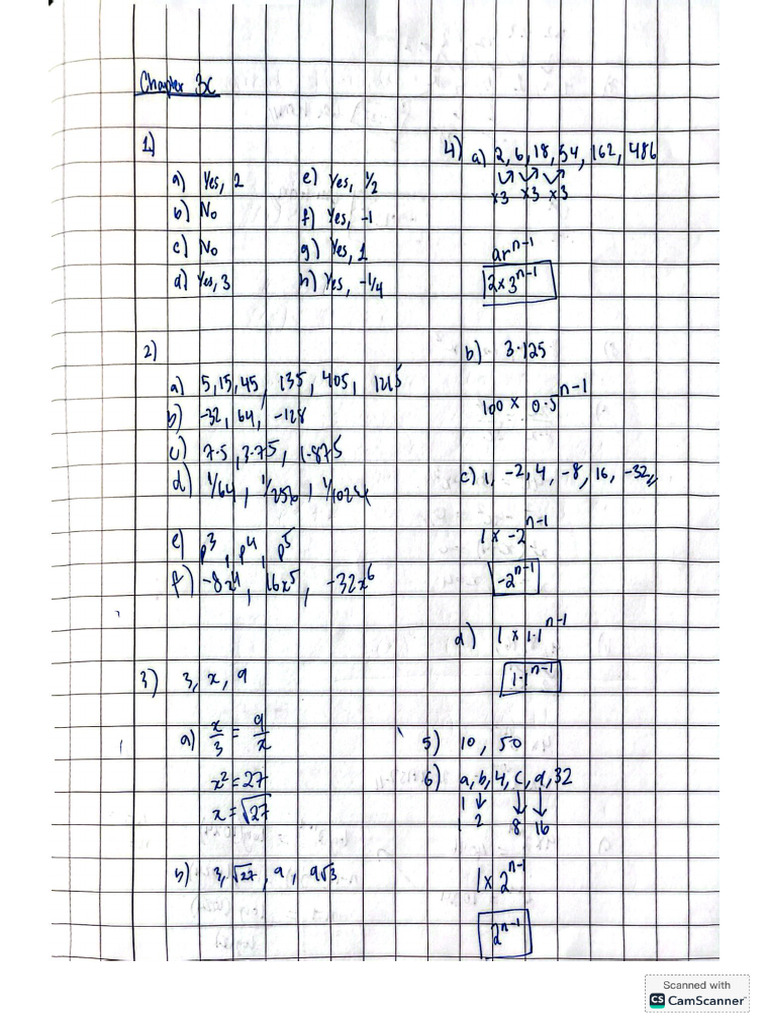 Chapter 3C
1)
a) Yes, 2
b) No
c) No
d) Yes, 3
e) Yes, 1/2
f) Yes, -1
g) Yes, 1
h) Yes, -1/4
2)
a) 5, 15, 45, 135, 405, 1215
b) -32, 64, -128
c) 7.5, 3.75, 1.875
d) 1/64, 1/256, 1/1024
e) p³, p⁴, p⁵
f) -8x⁴, 16x⁵, -32x⁶
3) 3, x, 9
a) x/3 = 9/x
x² = 27
x = √27
b) 3, √27, 9, 9√3
4) a) 2, 6, 18, 54, 162, 486
×3 ×3 ×3
arⁿ⁻¹
2 × 3ⁿ⁻¹
b) 3.125
100 × 0.5ⁿ⁻¹
c) 1, -2, 4, -8, 16, -32
1 × -2ⁿ⁻¹
-2ⁿ⁻¹
d) 1 × 1.1ⁿ⁻¹
1.1ⁿ⁻¹
5) 10, 50
6) a, b, 4, c, d, 32
1 2 8 16
1 × 2ⁿ⁻¹
2ⁿ⁻¹
Scanned with
CS CamScanner